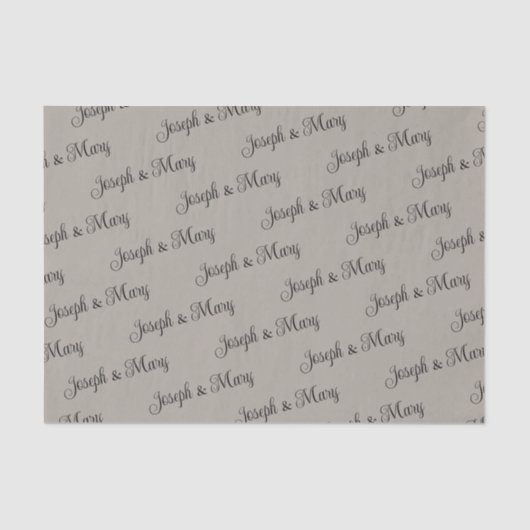 Joseph &
Joseph & Mary
Joseph & Mary
Joseph & Mary
& Mary
Joseph & Mary
Joseph & Mary
Joseph & Mary
Joseph & Mary
seph & Mary
Joseph & Mary
Joseph & Mary
Joseph & Mary
Joseph & Mary
Joseph &
Mary
Joseph & Mary
Joseph & Mary
Joseph & Mary
Joseph & Mary
Joseph & Mary
Mary
Joseph & Mary
Joseph & Mary
Joseph & Mary
Joseph & Mary